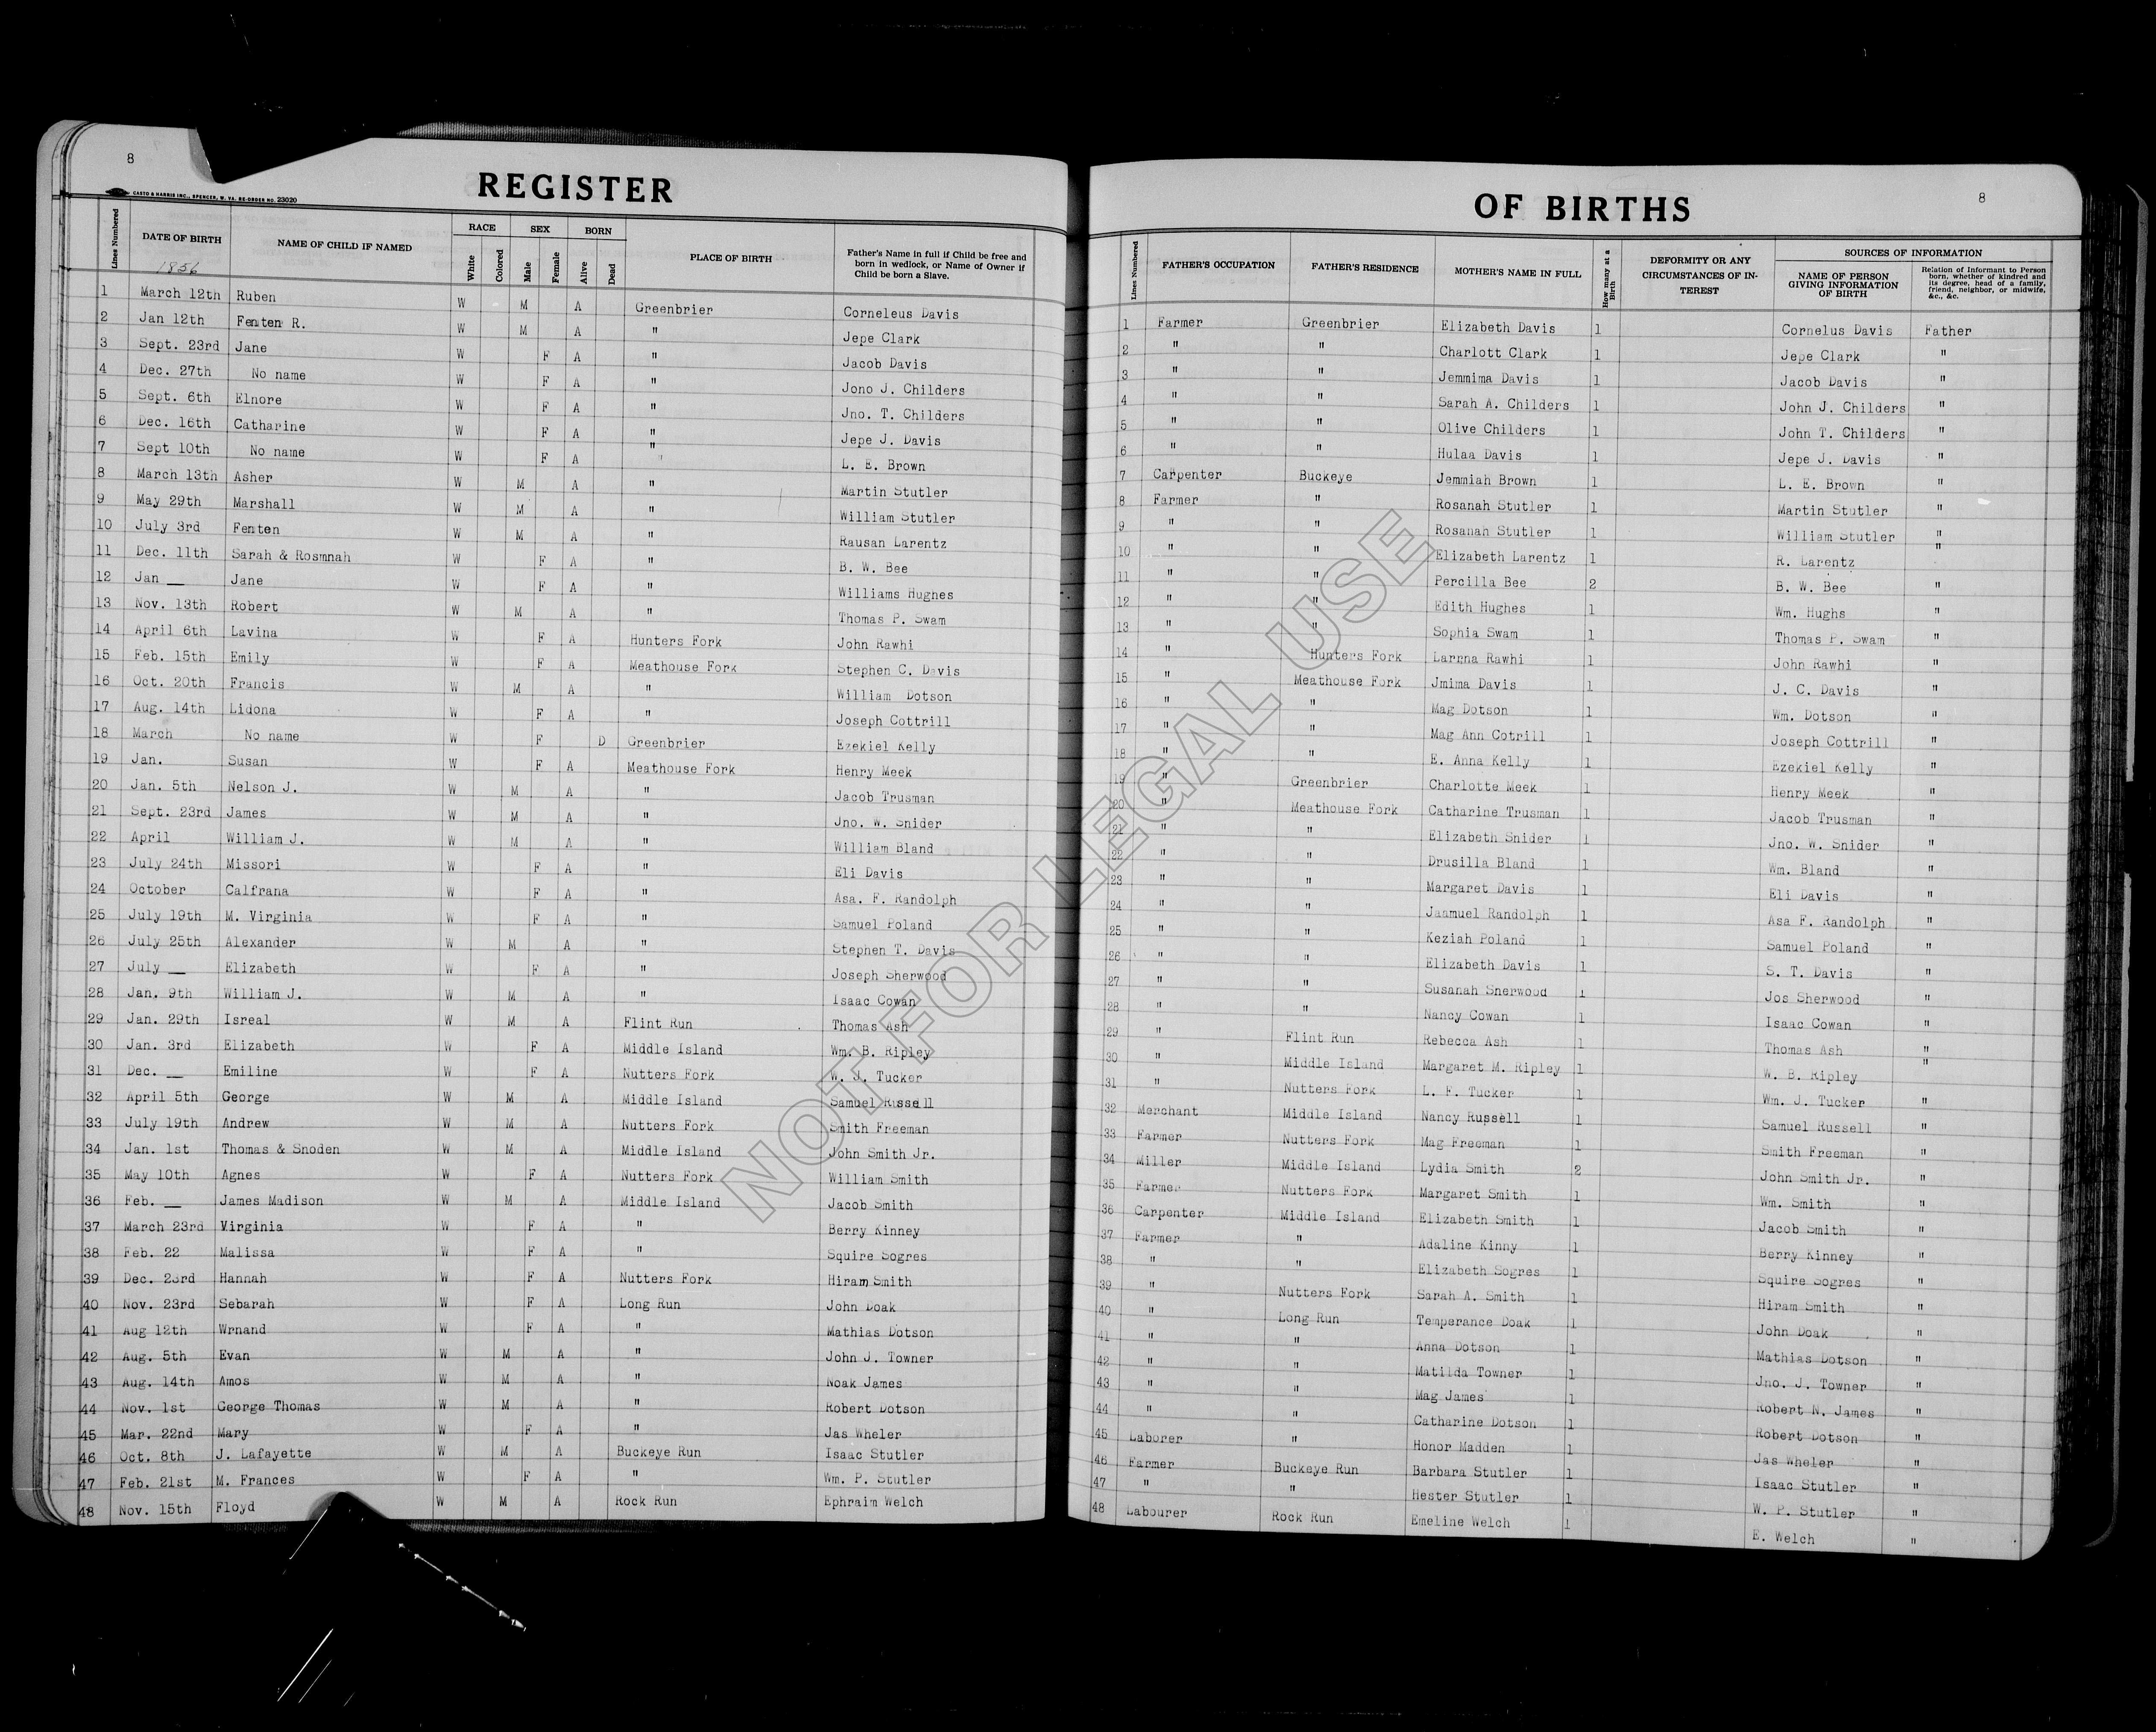 8
CASTO & HARRIS INC., SPENCER, W. VA. RE-ORDER NO. 23020
REGISTER
Lines Numbered DATE OF BIRTH NAME OF CHILD IF NAMED RACE White Colored SEX Male Female BORN Alive Dead PLACE OF BIRTH Father's Name in full if Child be free and born in wedlock, or Name of Owner if Child be born a Slave.
1856
1 March 12th Ruben W M A Greenbrier Corneleus Davis
2 Jan 12th Fenten R. W M A " Jepe Clark
3 Sept. 23rd Jane W F A " Jacob Davis
4 Dec. 27th No name W F A " Jono J. Childers
5 Sept. 6th Elnore W F A " Jno. T. Childers
6 Dec. 16th Catharine W F A " Jepe J. Davis
7 Sept 10th No name W F A " L. E. Brown
8 March 13th Asher W M A " Martin Stutler
9 May 29th Marshall W M A " William Stutler
10 July 3rd Fenten W M A " Rausan Larentz
11 Dec. 11th Sarah & Rosmnah W F A " B. W. Bee
12 Jan __ Jane W F A " Williams Hughes
13 Nov. 13th Robert W M A " Thomas P. Swam
14 April 6th Lavina W F A Hunters Fork John Rawhi
15 Feb. 15th Emily W F A Meathouse Fork Stephen C. Davis
16 Oct. 20th Francis W M A " William Dotson
17 Aug. 14th Lidona W F A " Joseph Cottrill
18 March No name W F D Greenbrier Ezekiel Kelly
19 Jan. Susan W F A Meathouse Fork Henry Meek
20 Jan. 5th Nelson J. W M A " Jacob Trusman
21 Sept. 23rd James W M A " Jno. W. Snider
22 April William J. W M A " William Bland
23 July 24th Missori W F A " Eli Davis
24 October Calfrana W F A " Asa. F. Randolph
25 July 19th M. Virginia W F A " Samuel Poland
26 July 25th Alexander W M A " Stephen T. Davis
27 July __ Elizabeth W F A " Joseph Sherwood
28 Jan. 9th William J. W M A " Isaac Cowan
29 Jan. 29th Isreal W M A Flint Run Thomas Ash
30 Jan. 3rd Elizabeth W F A Middle Island Wm. B. Ripley
31 Dec. __ Emiline W F A Nutters Fork W. J. Tucker
32 April 5th George W M A Middle Island Samuel Russell
33 July 19th Andrew W M A Nutters Fork Smith Freeman
34 Jan. 1st Thomas & Snoden W M A Middle Island John Smith Jr.
35 May 10th Agnes W F A Nutters Fork William Smith
36 Feb. __ James Madison W M A Middle Island Jacob Smith
37 March 23rd Virginia W F A " Berry Kinney
38 Feb. 22 Malissa W F A " Squire Sogres
39 Dec. 23rd Hannah W F A Nutters Fork Hiram Smith
40 Nov. 23rd Sebarah W F A Long Run John Doak
41 Aug 12th Wrnand W F A " Mathias Dotson
42 Aug. 5th Evan W M A " John J. Towner
43 Aug. 14th Amos W M A " Noak James
44 Nov. 1st George Thomas W M A " Robert Dotson
45 Mar. 22nd Mary W F A " Jas Wheler
46 Oct. 8th J. Lafayette W M A Buckeye Run Isaac Stutler
47 Feb. 21st M. Frances W F A " Wm. P. Stutler
48 Nov. 15th Floyd W M A Rock Run Ephraim Welch
8
OF BIRTHS
Lines Numbered FATHER'S OCCUPATION FATHER'S RESIDENCE MOTHER'S NAME IN FULL How many at a Birth DEFORMITY OR ANY CIRCUMSTANCES OF INTEREST SOURCES OF INFORMATION NAME OF PERSON GIVING INFORMATION OF BIRTH Relation of Informant to Person born, whether of kindred and its degree, head of a family, friend, neighbor, or midwife, &c., &c.
1 Farmer Greenbrier Elizabeth Davis 1 Cornelus Davis Father
2 " " Charlott Clark 1 Jepe Clark "
3 " " Jemmima Davis 1 Jacob Davis "
4 " " Sarah A. Childers 1 John J. Childers "
5 " " Olive Childers 1 John T. Childers "
6 " " Hulaa Davis 1 Jepe J. Davis "
7 Carpenter Buckeye Jemmiah Brown 1 L. E. Brown "
8 Farmer " Rosanah Stutler 1 Martin Stutler "
9 " " Rosanah Stutler 1 William Stutler "
10 " " Elizabeth Larentz 1 R. Larentz "
11 " " Percilla Bee 2 B. W. Bee "
12 " " Edith Hughes 1 Wm. Hughs "
13 " " Sophia Swam 1 Thomas P. Swam "
14 " Hunters Fork Larnna Rawhi 1 John Rawhi "
15 Meathouse Fork Jmima Davis 1 J. C. Davis "
16 " " Mag Dotson 1 Wm. Dotson "
17 " " Mag Ann Cotrill 1 Joseph Cottrill "
18 " " E. Anna Kelly 1 Ezekiel Kelly "
19 " Greenbrier Charlotte Meek 1 Henry Meek "
20 " Meathouse Fork Catharine Trusman 1 Jacob Trusman "
21 " " Elizabeth Snider 1 Jno. W. Snider "
22 " " Drusilla Bland 1 Wm. Bland "
23 " " Margaret Davis 1 Eli Davis "
24 " " Jaamuel Randolph 1 Asa F. Randolph "
25 " " Keziah Poland 1 Samuel Poland "
26 " " Elizabeth Davis 1 S. T. Davis "
27 " " Susanah Snerwood 1 Jos Sherwood "
28 " " Nancy Cowan 1 Isaac Cowan "
29 " Flint Run Rebecca Ash 1 Thomas Ash "
30 " Middle Island Margaret M. Ripley 1 W. B. Ripley "
31 " Nutters Fork L. F. Tucker 1 Wm. J. Tucker "
32 Merchant Middle Island Nancy Russell 1 Samuel Russell "
33 Farmer Nutters Fork Mag Freeman 1 Smith Freeman "
34 Miller Middle Island Lydia Smith 2 John Smith Jr. "
35 Farmer Nutters Fork Margaret Smith 1 Wm. Smith "
36 Carpenter Middle Island Elizabeth Smith 1 Jacob Smith "
37 Farmer " Adaline Kinny 1 Berry Kinney "
38 " " Elizabeth Sogres 1 Squire Sogres "
39 " Nutters Fork Sarah A. Smith 1 Hiram Smith "
40 " Long Run Temperance Doak 1 John Doak "
41 " " Anna Dotson 1 Mathias Dotson "
42 " " Matilda Towner 1 Jno. J. Towner "
43 " " Mag James 1 Robert N. James "
44 " " Catharine Dotson 1 Robert Dotson "
45 Laborer " Honor Madden 1 Jas Wheler "
46 Farmer Buckeye Run Barbara Stutler 1 Isaac Stutler "
47 " " Hester Stutler 1 W. P. Stutler "
48 Labourer Rock Run Emeline Welch 1 E. Welch "
NOT FOR LEGAL USE